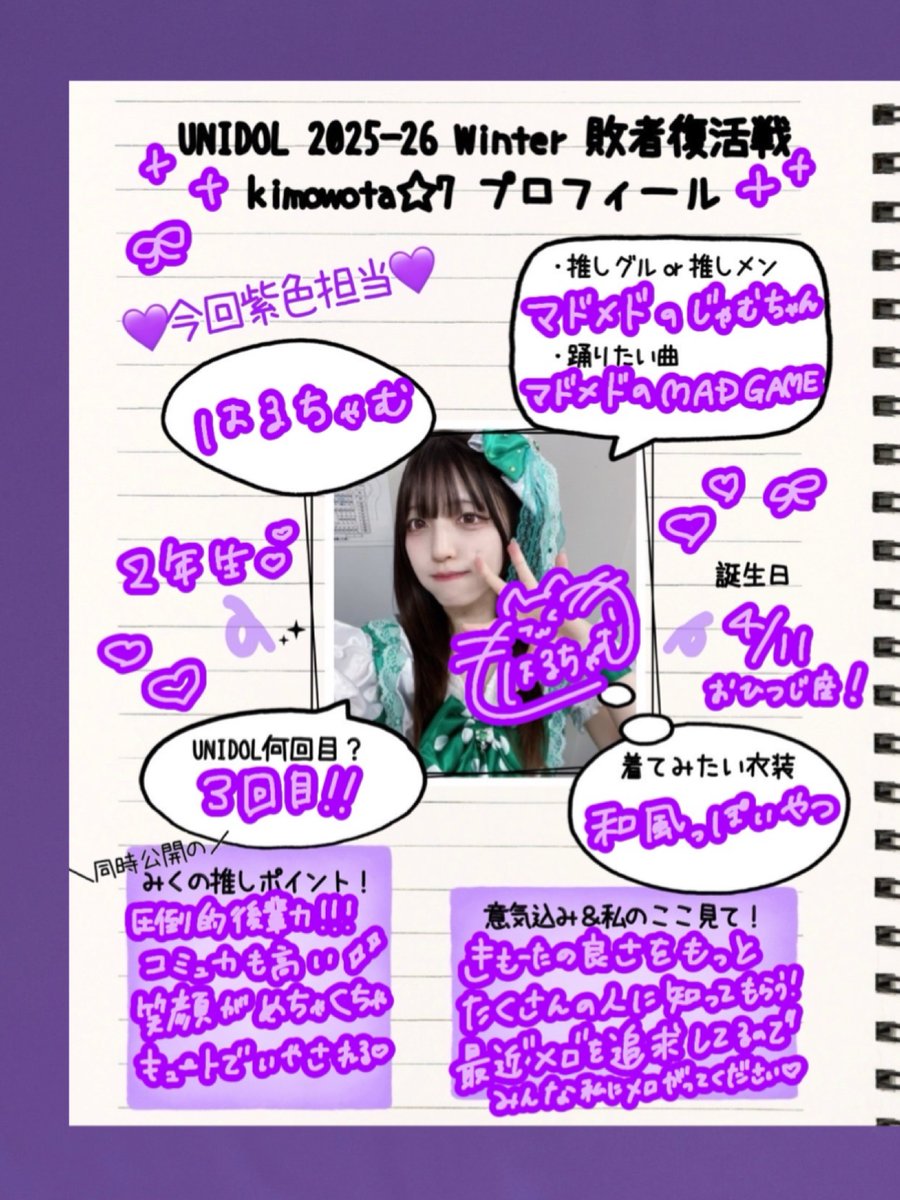 UNIDOL 2025-26 Winter 敗者復活戦
kimowota☆7 プロフィール
💜今回紫色担当💜
はまちゃむ
・推しグル or 推しメン
マドメドのじゃむちゃん
・踊りたい曲
マドメドのMAD GAME
2年生
誕生日
4/11
おひつじ座!
UNIDOL何回目?
3回目!!
着てみたい衣装
和風っぽいやつ
\同時公開の/
みくの推しポイント!
圧倒的後輩力!!!
コミュ力も高い
笑顔がめちゃくちゃ
キュートでいやされる♡
意気込み&私のここ見て!
きもーたの良さをもっと
たくさんの人に知ってもらう!
最近メロを追求してるので
みんな私にメロがってください♡